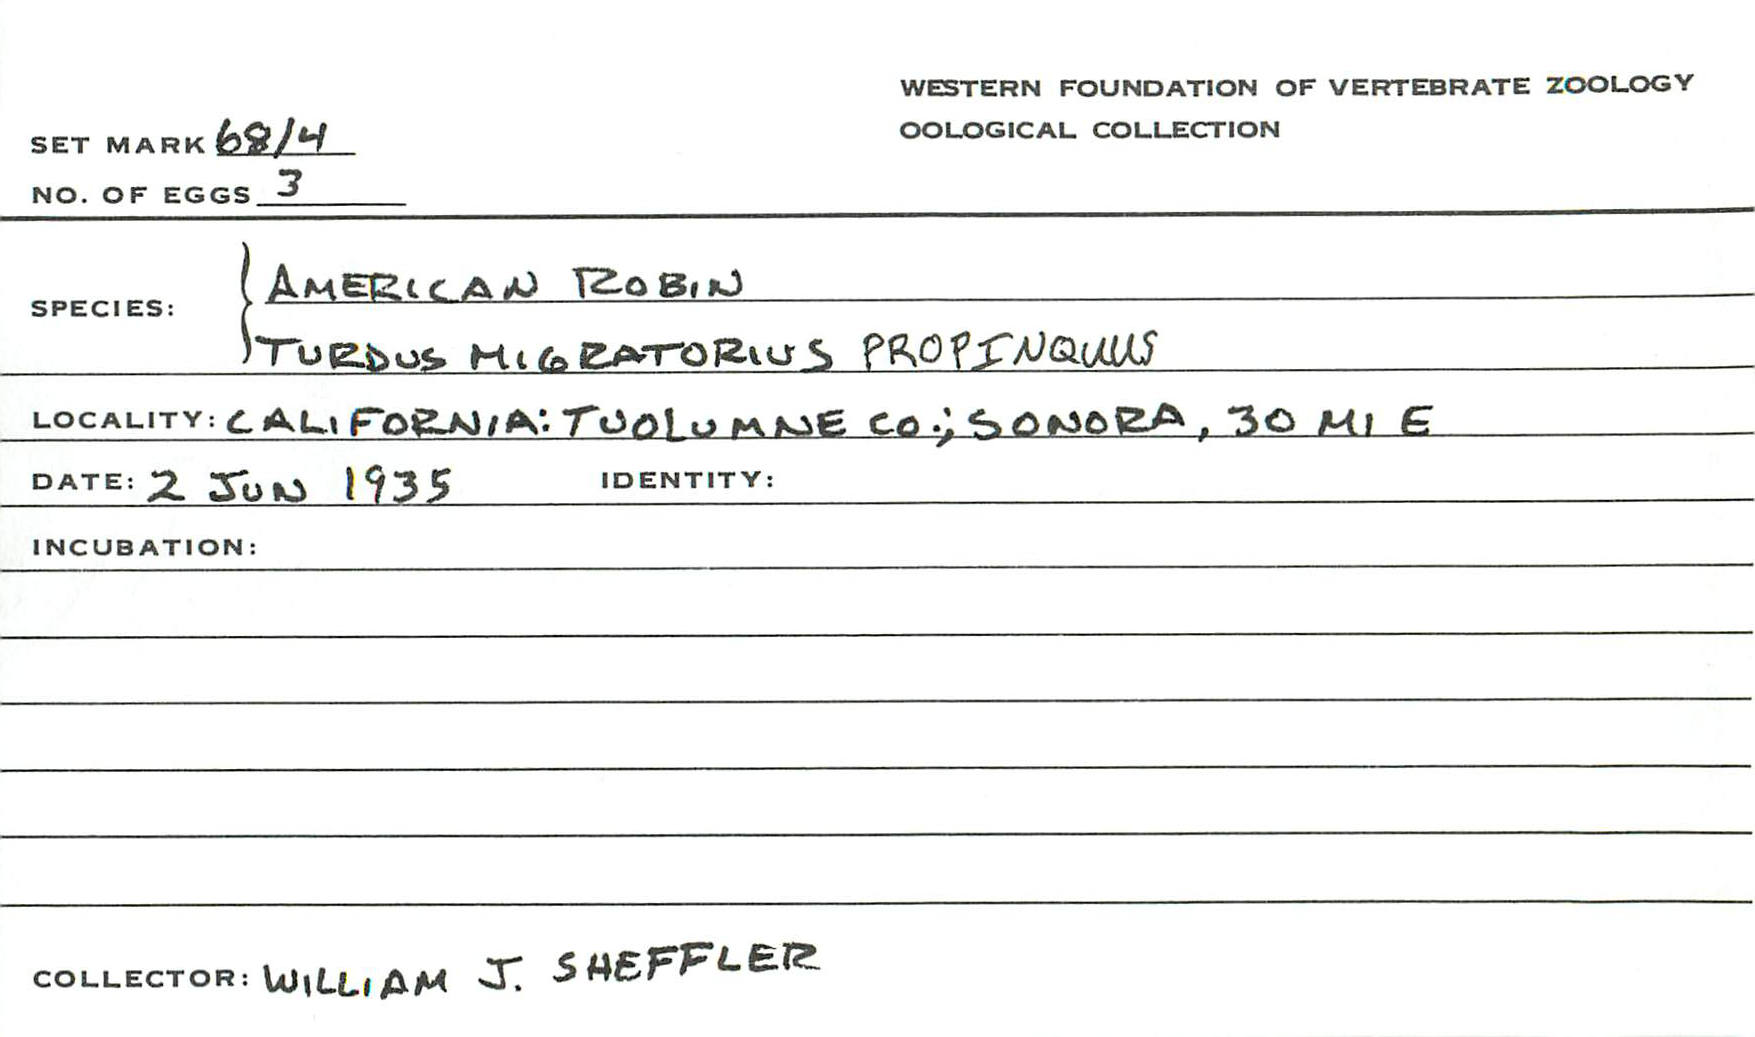 WESTERN FOUNDATION OF VERTEBRATE ZOOLOGY
OOLOGICAL COLLECTION
SET MARK 68/4
NO. OF EGGS 3
SPECIES: AMERICAN ROBIN
TURDUS MIGRATORIUS PROPINQUUS
LOCALITY: CALIFORNIA: TUOLUMNE CO.; SONORA, 30 MI E
DATE: 2 JUN 1935 IDENTITY:
INCUBATION:
COLLECTOR: WILLIAM J. SHEFFLER